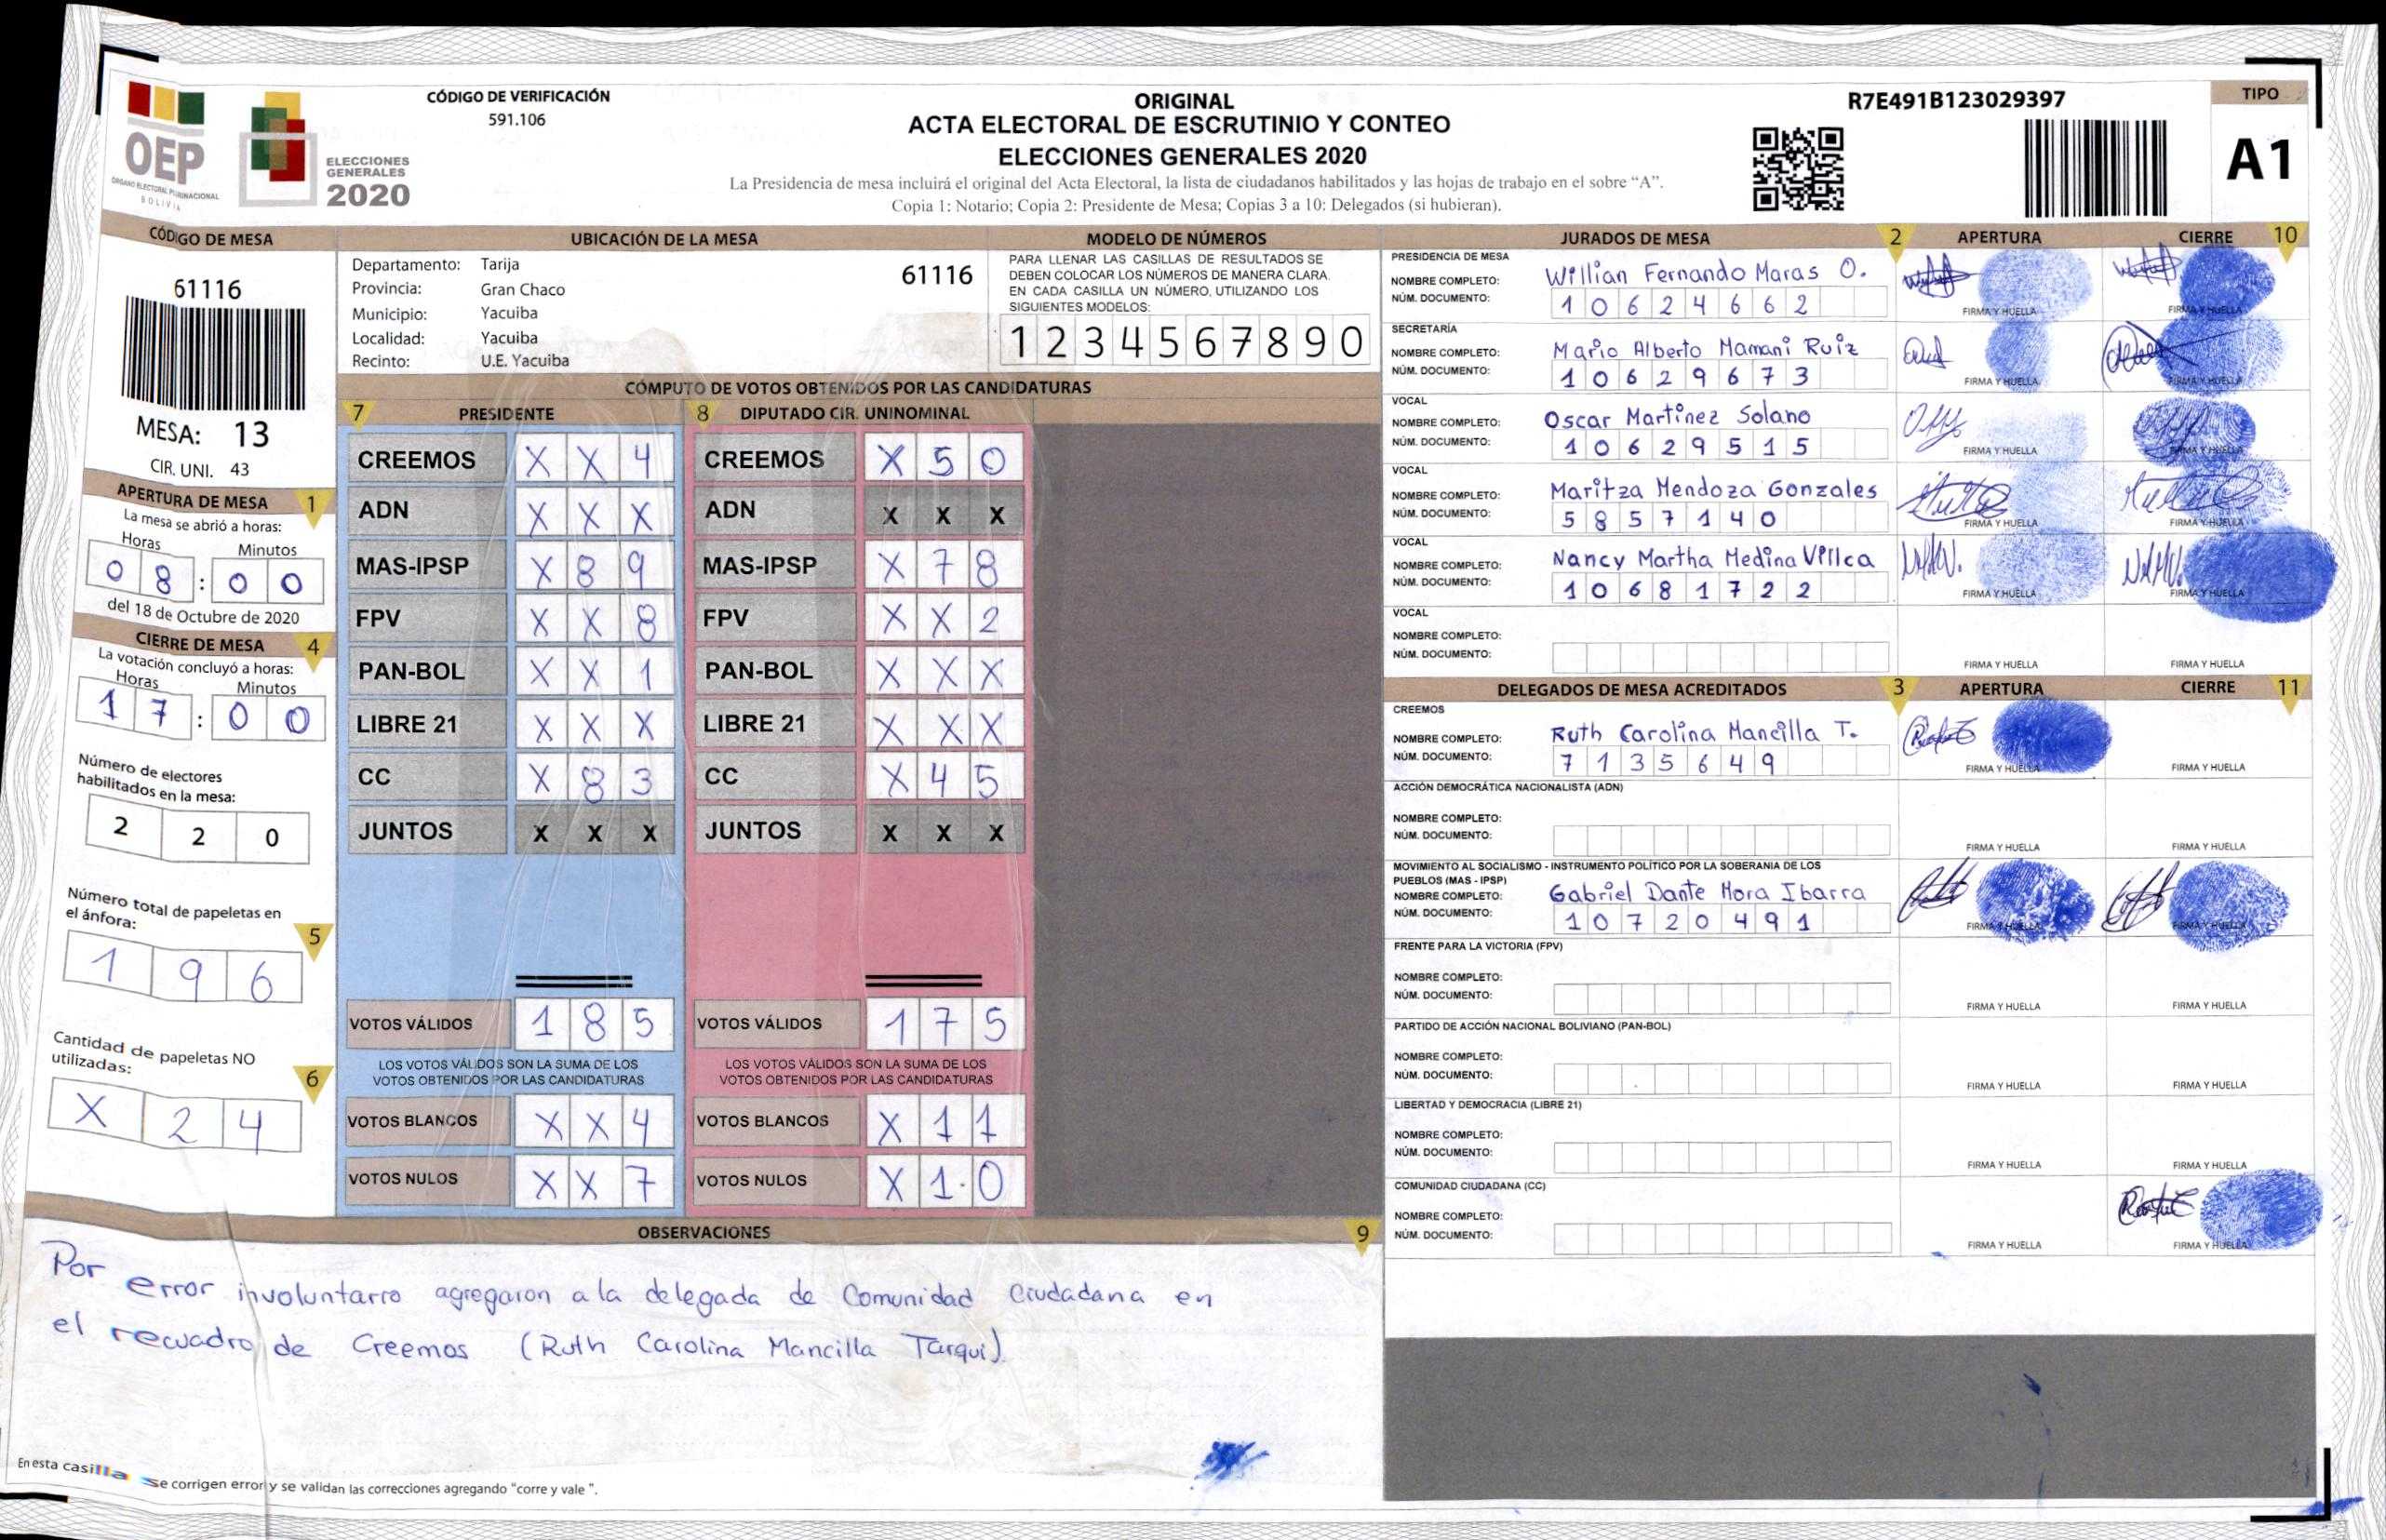 OEP
ÓRGANO ELECTORAL PLURINACIONAL
BOLIVIA
ELECCIONES
GENERALES
2020
CÓDIGO DE VERIFICACIÓN
591.106
ORIGINAL
ACTA ELECTORAL DE ESCRUTINIO Y CONTEO
ELECCIONES GENERALES 2020
La Presidencia de mesa incluirá el original del Acta Electoral, la lista de ciudadanos habilitados y las hojas de trabajo en el sobre “A”.
Copia 1: Notario; Copia 2: Presidente de Mesa; Copias 3 a 10: Delegados (si hubieran).
R7E491B123029397
TIPO
A1
CÓDIGO DE MESA
61116
MESA: 13
CIR. UNI. 43
APERTURA DE MESA 1
La mesa se abrió a horas:
Horas Minutos
0 8 : 0 0
del 18 de Octubre de 2020
CIERRE DE MESA 4
La votación concluyó a horas:
Horas Minutos
1 7 : 0 0
Número de electores
habilitados en la mesa:
2 2 0
Número total de papeletas en
el ánfora:
5
1 9 6
Cantidad de papeletas NO
utilizadas:
6
X 2 4
UBICACIÓN DE LA MESA
Departamento: Tarija
61116
Provincia: Gran Chaco
Municipio: Yacuiba
Localidad: Yacuiba
Recinto: U.E. Yacuiba
MODELO DE NÚMEROS
PARA LLENAR LAS CASILLAS DE RESULTADOS SE
DEBEN COLOCAR LOS NÚMEROS DE MANERA CLARA.
EN CADA CASILLA UN NÚMERO, UTILIZANDO LOS
SIGUIENTES MODELOS:
1 2 3 4 5 6 7 8 9 0
CÓMPUTO DE VOTOS OBTENIDOS POR LAS CANDIDATURAS
7 PRESIDENTE
CREEMOS X X 4
ADN X X X
MAS-IPSP X 8 9
FPV X X 8
PAN-BOL X X 1
LIBRE 21 X X X
CC X 8 3
JUNTOS X X X
VOTOS VÁLIDOS 1 8 5
LOS VOTOS VÁLIDOS SON LA SUMA DE LOS
VOTOS OBTENIDOS POR LAS CANDIDATURAS
VOTOS BLANCOS X X 4
VOTOS NULOS X X 7
8 DIPUTADO CIR. UNINOMINAL
CREEMOS X 5 0
ADN X X X
MAS-IPSP X 7 8
FPV X X 2
PAN-BOL X X X
LIBRE 21 X X X
CC X 4 5
JUNTOS X X X
VOTOS VÁLIDOS 1 7 5
LOS VOTOS VÁLIDOS SON LA SUMA DE LOS
VOTOS OBTENIDOS POR LAS CANDIDATURAS
VOTOS BLANCOS X 1 1
VOTOS NULOS X 1 0
OBSERVACIONES 9
Por error involuntarro agregaron a la delegada de Comunidad Ciudadana en
el recuadro de Creemos (Ruth Carolina Mancilla Tarqui)
En esta casilla se corrigen error y se validan las correcciones agregando "corre y vale ".
JURADOS DE MESA 2 APERTURA CIERRE 10
PRESIDENCIA DE MESA
NOMBRE COMPLETO: Willian Fernando Maras O.
NÚM. DOCUMENTO: 1 0 6 2 4 6 6 2
FIRMA Y HUELLA FIRMA Y HUELLA
SECRETARÍA
NOMBRE COMPLETO: Mario Alberto Mamani Ruiz
NÚM. DOCUMENTO: 1 0 6 2 9 6 7 3
FIRMA Y HUELLA FIRMA Y HUELLA
VOCAL
NOMBRE COMPLETO: Oscar Martinez Solano
NÚM. DOCUMENTO: 1 0 6 2 9 5 1 5
FIRMA Y HUELLA FIRMA Y HUELLA
VOCAL
NOMBRE COMPLETO: Maritza Mendoza Gonzales
NÚM. DOCUMENTO: 5 8 5 7 1 4 0
FIRMA Y HUELLA FIRMA Y HUELLA
VOCAL
NOMBRE COMPLETO: Nancy Martha Medina Villca
NÚM. DOCUMENTO: 1 0 6 8 1 7 2 2
FIRMA Y HUELLA FIRMA Y HUELLA
VOCAL
NOMBRE COMPLETO:
NÚM. DOCUMENTO:
FIRMA Y HUELLA FIRMA Y HUELLA
DELEGADOS DE MESA ACREDITADOS 3 APERTURA CIERRE 11
CREEMOS
NOMBRE COMPLETO: Ruth Carolina Mancilla T.
NÚM. DOCUMENTO: 7 1 3 5 6 4 9
FIRMA Y HUELLA FIRMA Y HUELLA
ACCIÓN DEMOCRÁTICA NACIONALISTA (ADN)
NOMBRE COMPLETO:
NÚM. DOCUMENTO:
FIRMA Y HUELLA FIRMA Y HUELLA
MOVIMIENTO AL SOCIALISMO - INSTRUMENTO POLÍTICO POR LA SOBERANIA DE LOS
PUEBLOS (MAS - IPSP)
NOMBRE COMPLETO: Gabriel Dante Mora Ibarra
NÚM. DOCUMENTO: 1 0 7 2 0 4 9 1
FIRMA Y HUELLA FIRMA Y HUELLA
FRENTE PARA LA VICTORIA (FPV)
NOMBRE COMPLETO:
NÚM. DOCUMENTO:
FIRMA Y HUELLA FIRMA Y HUELLA
PARTIDO DE ACCIÓN NACIONAL BOLIVIANO (PAN-BOL)
NOMBRE COMPLETO:
NÚM. DOCUMENTO:
FIRMA Y HUELLA FIRMA Y HUELLA
LIBERTAD Y DEMOCRACIA (LIBRE 21)
NOMBRE COMPLETO:
NÚM. DOCUMENTO:
FIRMA Y HUELLA FIRMA Y HUELLA
COMUNIDAD CIUDADANA (CC)
NOMBRE COMPLETO:
NÚM. DOCUMENTO:
FIRMA Y HUELLA FIRMA Y HUELLA